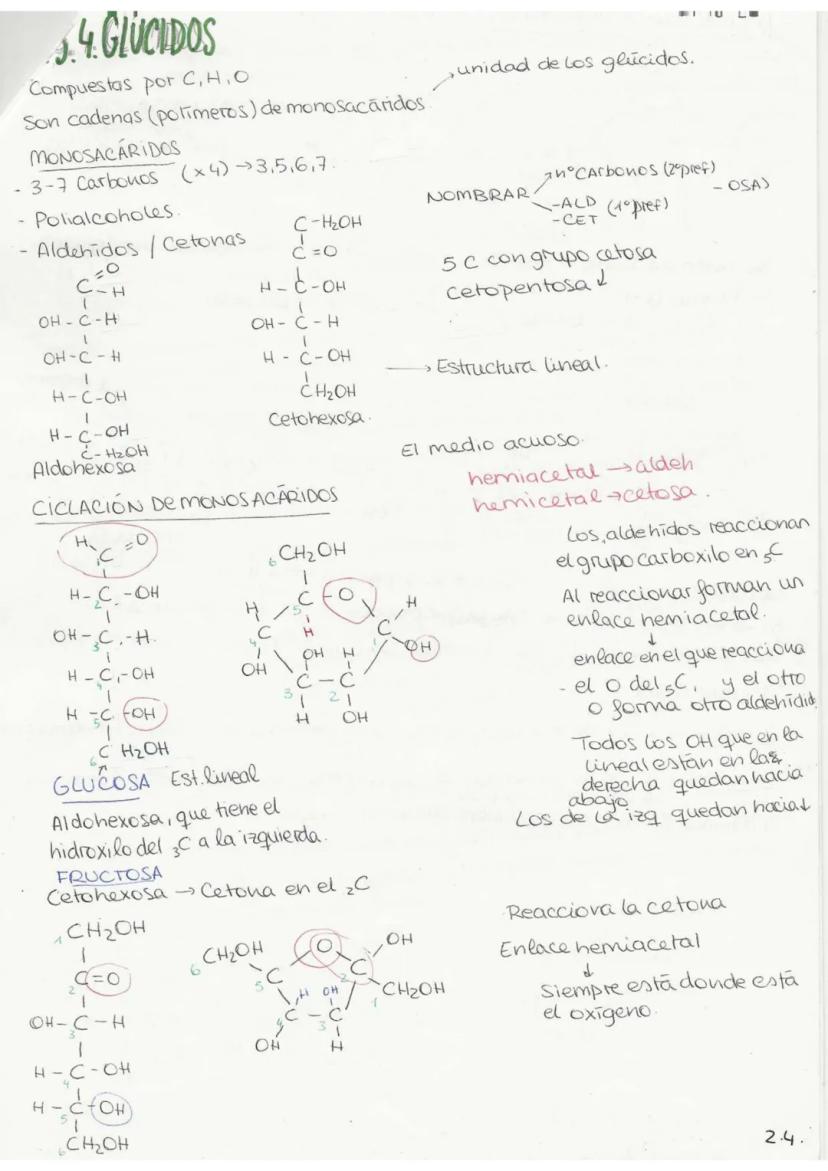 3.4. GLÚCIDOS
Compuestas por C, H, O
→ unidad de los glúcidos.
Son cadenas (polímeros) de monosacáridos
MONOSACÁRIDOS
- 3-7 Carbonos (x4) → 3,5,6,7.
- Polialcoholes.
- Aldehídos / Cetonas
NOMBRAR
nº Carbonos (2º pref)
- ALD
- CET (1º pref)
- OSA)
5 C con grupo cetosa
cetopentosa ↓
C=O
C-H
OH-C-H
OH-C-H
H-C-OH
H-C-OH
C-H2OH
Aldohexosa
C-H2OH
C=O
H-C-OH
OH-C-H
H-C-OH
CH2OH
Cetohexosa.
→ Estructura lineal.
El medio acuoso.
hemiacetal → aldeh
hemicetal → cetosa.
CICLACIÓN DE MONOSACÁRIDOS
H C=O
1
H-C-OH
2
OH-C-H
3
H-C-OH
4
H-C-OH
5
6 C H2OH
6 CH2OH
C O
5
H C H C H
4 1
OH OH H OH
C-C
3 2
H OH
Los aldehídos reaccionan
el grupo carboxilo en 5C
Al reaccionar forman un
enlace hemiacetal.
↓
enlace en el que reacciona
- el O del 5C, y el otro
O forma otro aldehído.
Todos los OH que en la
lineal están en las
derecha quedan hacia
abajo
Los de la izq quedan hacia ↓
GLUCOSA Est. lineal
Aldohexosa, que tiene el
hidroxilo del 3C a la izquierda.
FRUCTOSA
Cetohexosa → Cetona en el 2C
1 CH2OH
C=O
2
OH-C-H
3
H-C-OH
4
H-C-OH
5
6 CH2OH
CH2OH O OH
6
C C
5 2
CH2OH
1
H OH
C-C
4 3
OH H
Reacciona la cetona
Enlace hemiacetal
↓
Siempre está donde está
el oxígeno.
2.4.